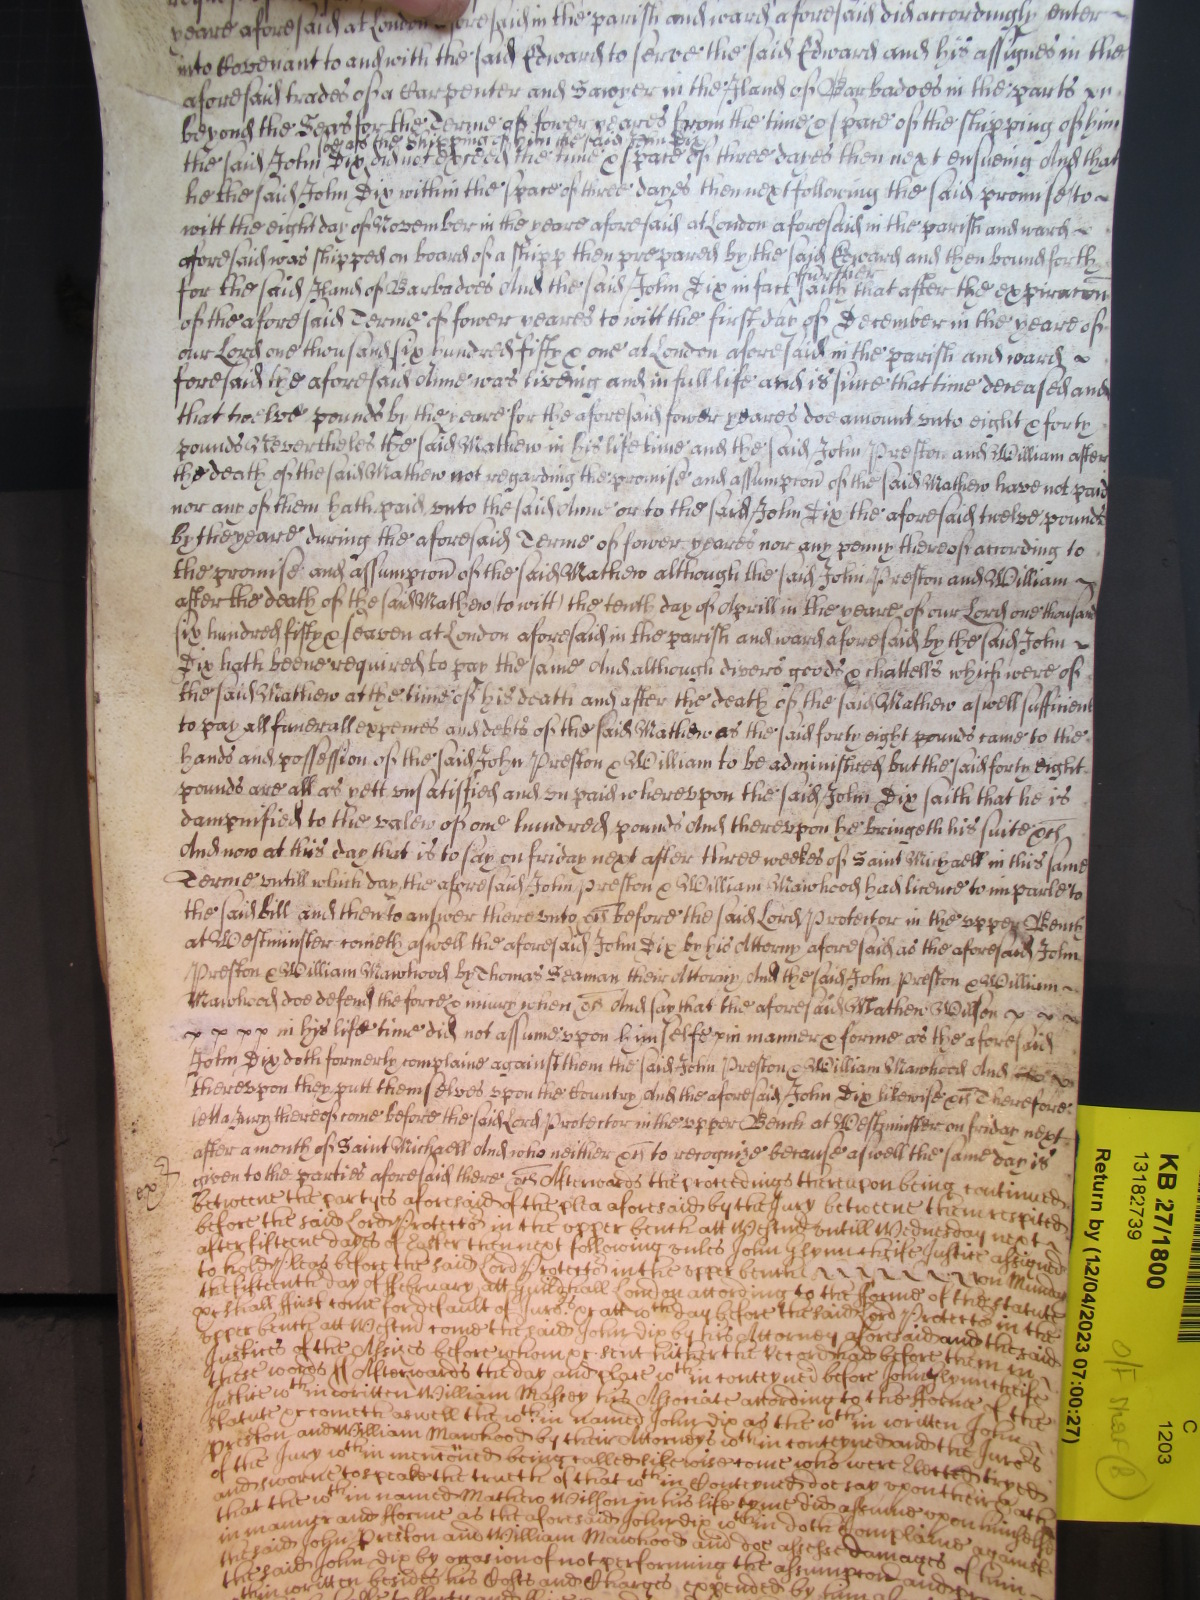 yeare aforesaid at London aforesaid in the parish and ward aforesaid did accordingly enter
into Covenant to and with the said Edward to serve the said Edward and his assignes in the
aforesaid trades of a Carpenter and Sawyer in the Iland of Barbadoes in the parts
beyond the Seas for the Terme of fower yeares from the time & space of the shipping of him
soe as the shipping of him the said John Dix
the said John Dix did not exceed the time & space of three dayes then next ensueing And that
he the said John Dix within the space of three dayes then next following the said promise to
witt the eight day of November in the yeare aforesaid at London aforesaid in the parish and ward
aforesaid was shipped on board of a shipp then prepared by the said Edward and then bound forth
further
for the said Iland of Barbadoes And the said John Dix in fact saith that after the expiracon
of the aforesaid Terme of fower yeares to witt the first day of December in the yeare of
our Lord one thousand six hundred fifty & one at London aforesaid in the parish and ward
foresaid the aforesaid Anne was liveing and in full life and is since that time deceased and
that twelve pounds by the yeare for the aforesaid fower yeares doe amount unto eight & forty
pounds Nevertheles the said Mathew in his life time and the said John Preston and William after
the death of the said Mathew not regarding the promise and assumpcon of the said Mathew have not paid
nor any of them hath paid unto the said Anne or to the said John Dix the aforesaid twelve pounds
by the yeare during the aforesaid Terme of fower yeares nor any penny thereof according to
the promise and assumpcon of the said Mathew although the said John Preston and William
after the death of the said Mathew (to witt) the tenth day of Aprill in the yeare of our Lord one thousand
six hundred fifty & seaven at London aforesaid in the parish and ward aforesaid by the said John
Dix hath beene required to pay the same And although divers goods & chattells which were of
the said Mathew at the time of his death and after the death of the said Mathew aswell sufficient
to pay all funerall expences and debts of the said Mathew as the said forty eight pounds came to the
hands and possession of the said John Preston & William to be administred but the said forty eight
pounds are all as yett unsatisfied and unpaid whereupon the said John Dix saith that he is
dampnified to the valew of one hundred pounds And thereupon he bringeth his suite &c
And now at this day that is to say on friday next after three weekes of Saint Michaell in this same
Terme untill which day the aforesaid John Preston & William Mawhood had licence to imparle to
the said bill and then to answer thereunto &c before the said Lord Protector in the upper Bench
at Westminster cometh aswell the aforesaid John Dix by his Attorny aforesaid as the aforesaid John
Preston & William Mawhood by Thomas Seaman their Attorny And the said John Preston & William
Mawhood doe defend the force & iniury when &c And say that the aforesaid Mathew Willson
in his life time did not assume upon himselfe in manner & forme as the aforesaid
John Dix doth formerly complaine against them the said John Preston & William Mawhood And
thereupon they putt themselves upon the Country And the aforesaid John Dix likewise &c Therefore
lett a Jury thereof come before the said Lord Protector in the upper Bench at Westminster on friday next
after a month of Saint Michaell And who neither &c to recognize because aswell the same day is
given to the parties aforesaid there &c Afterwards the proceedings thereupon being continued
betweene the partyes aforesaid of the plea aforesaid by the Jury betweene them respited
before the said Lord Protector in the upper bench att Westmr untill Wednesday next
after fifteene dayes of Easter then next following unles John Glynn cheife Justice assigned
to hold Pleas before the said Lord Protector in the upper bench on Munday
the fifteenth day of February att Guildhall London according to the fforme of the statute
&c shall ffirst come for default of Jurors &c att wch day before the said Lord Protector in the
upper bench att Westmr come the said John Dix by his Attorney aforesaid and the said
Justices of the Assizes before whom &c sent hither the record had before them in
these words Afterwards the day and place wthin conteyned before John Glynn cheife
Justice wthin written William Massey his Associate according to the fforme of the
statute &c cometh aswell the wthin named John Dix as the wthin written John
Preston and William Mawhood by their Attorneys wthin conteyned and the Jurors
of the Jury wthin menconed being called likewise come who were Elected tryed
and sworne to speake the trueth of that wthin Conteyned doe say upon their oath
that the wthin named Mathew Willson in his life tyme did assume upon himselfe
in manner and fforme as the aforesaid John Dix wthin doth complaine against
the said John Preston and William Mawhood and doe assesse damages of him
the said John Dix by occasion of not performing the assumpcon and
wthin written besides his Costs and Charges expended by him
KB 27/1800
13182739
C
1203
Return by (12/04/2023 07:00:27)